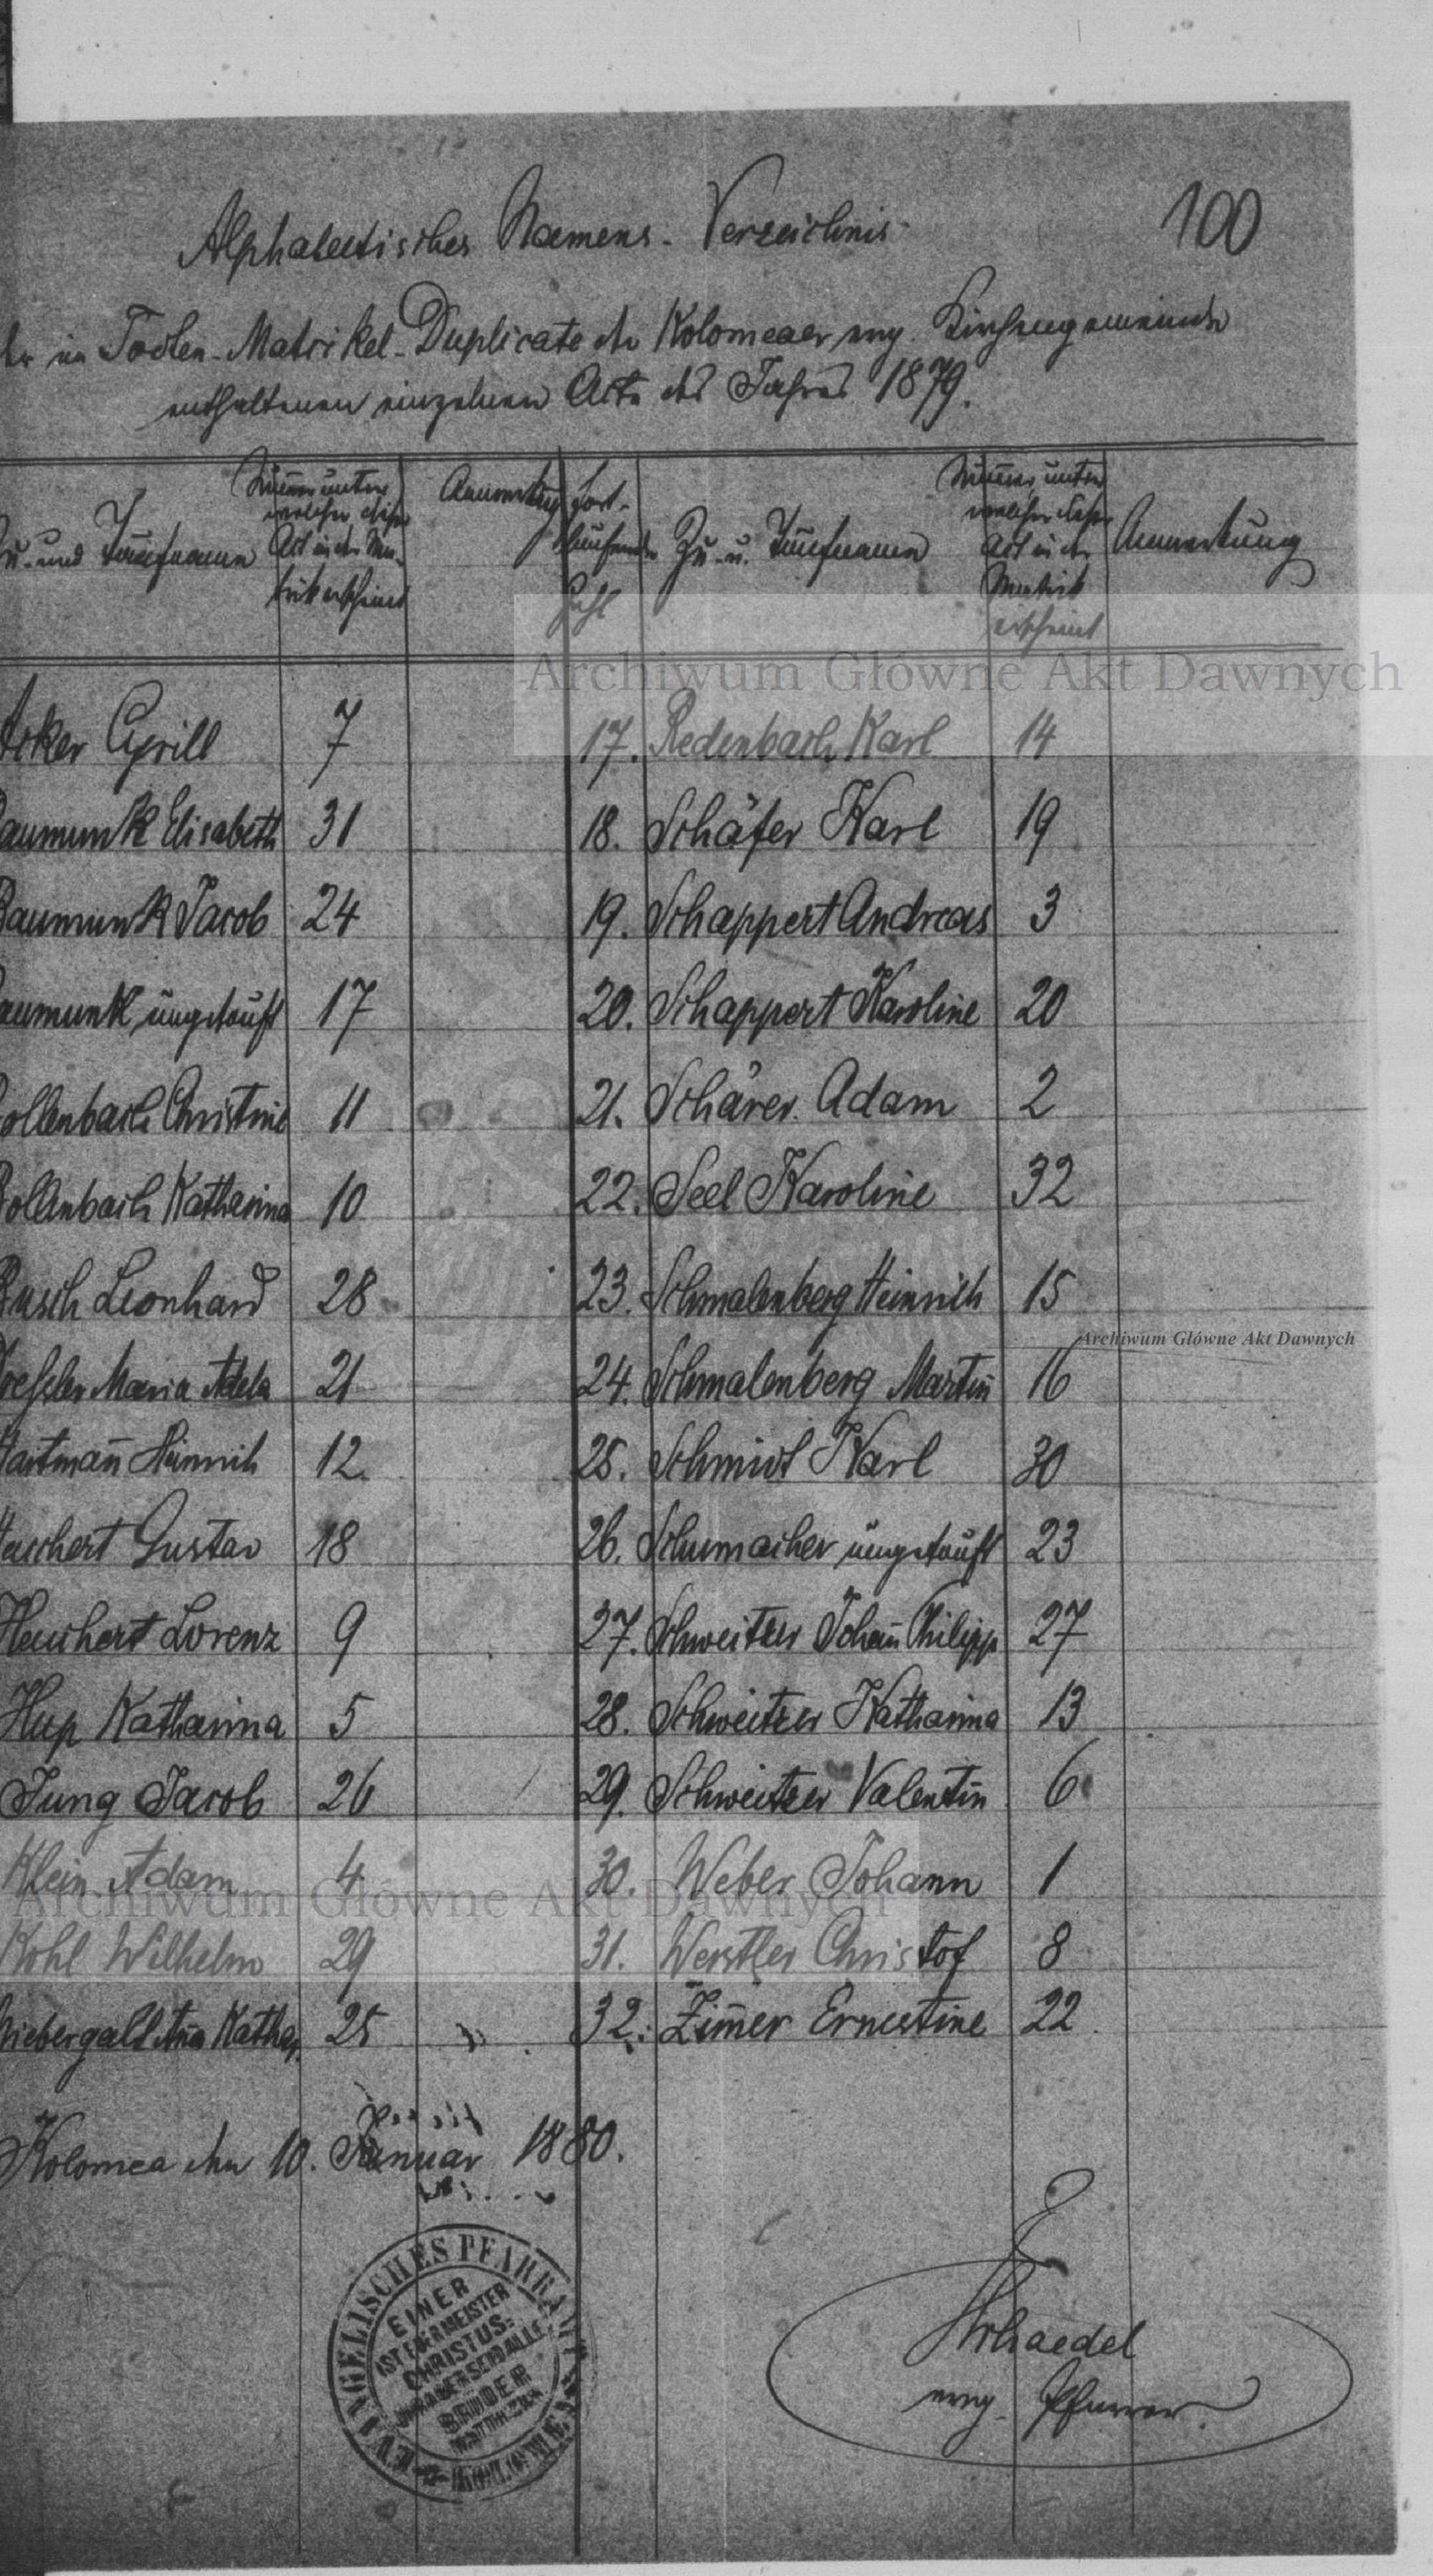 100
Alphabetisches Namens-Verzeichnis
der im Todten-Matrikel-Duplicate der Kolomeaer evang. Kirchengemeinde
enthaltenen einzelnen Acte des Jahres 1879.
Zu- und Taufname
Num̄er unter welcher dieser Act in der Matrik erscheint
Anmerkung
Fortlaufende Zahl
Zu- u. Taufnamen
Num̄er unter welcher dieser Act in der Matrik erscheint
Anmerkung
Archiwum Główne Akt Dawnych
Acker Cyrill 7 17. Redenbach Karl 14
Baumunk Elisabeth 31 18. Schäfer Karl 19
Baumunk Jacob 24 19. Schappert Andreas 3
Baumunk ungetauft 17 20. Schappert Karoline 20
Bollenbach Christine 11 21. Schärer Adam 2
Bollenbach Katharina 10 22. Seel Karoline 32
Busch Leonhard 28 23. Schmalenberg Heinrich 15
Archiwum Główne Akt Dawnych
Maria Adela 21 24. Schmalenberg Martin 16
Hartman̄ Heinrich 12. 25. Schmidt Karl 30
Heuchert Gustav 18 26. Schumacher ungetauft 23
Heuchert Lorenz 9 27. Schweitzer Johan̄ Philipp 27
Hup Katharina 5 28. Schweitzer Katharina 13
Jung Jacob 26 29. Schweitzer Valentin 6
Klein Adam 4 30. Weber Johann 1
Archiwum Główne Akt Dawnych
Kohl Wilhelm 29 31. Werstler Christof 8
Niebergall An̄a Kathar. 25 32. Zim̄er Ernestine 22
Kolomea den 10. Januar 1880.
EVANGELISCHES PFARRAMT
EINER
IST EUER MEISTER
CHRISTUS:
IHR ABER SEID ALLE
BRÜDER
MATTH. 23.8
KOLOMEA
Schaedel
evang. Pfarrer.